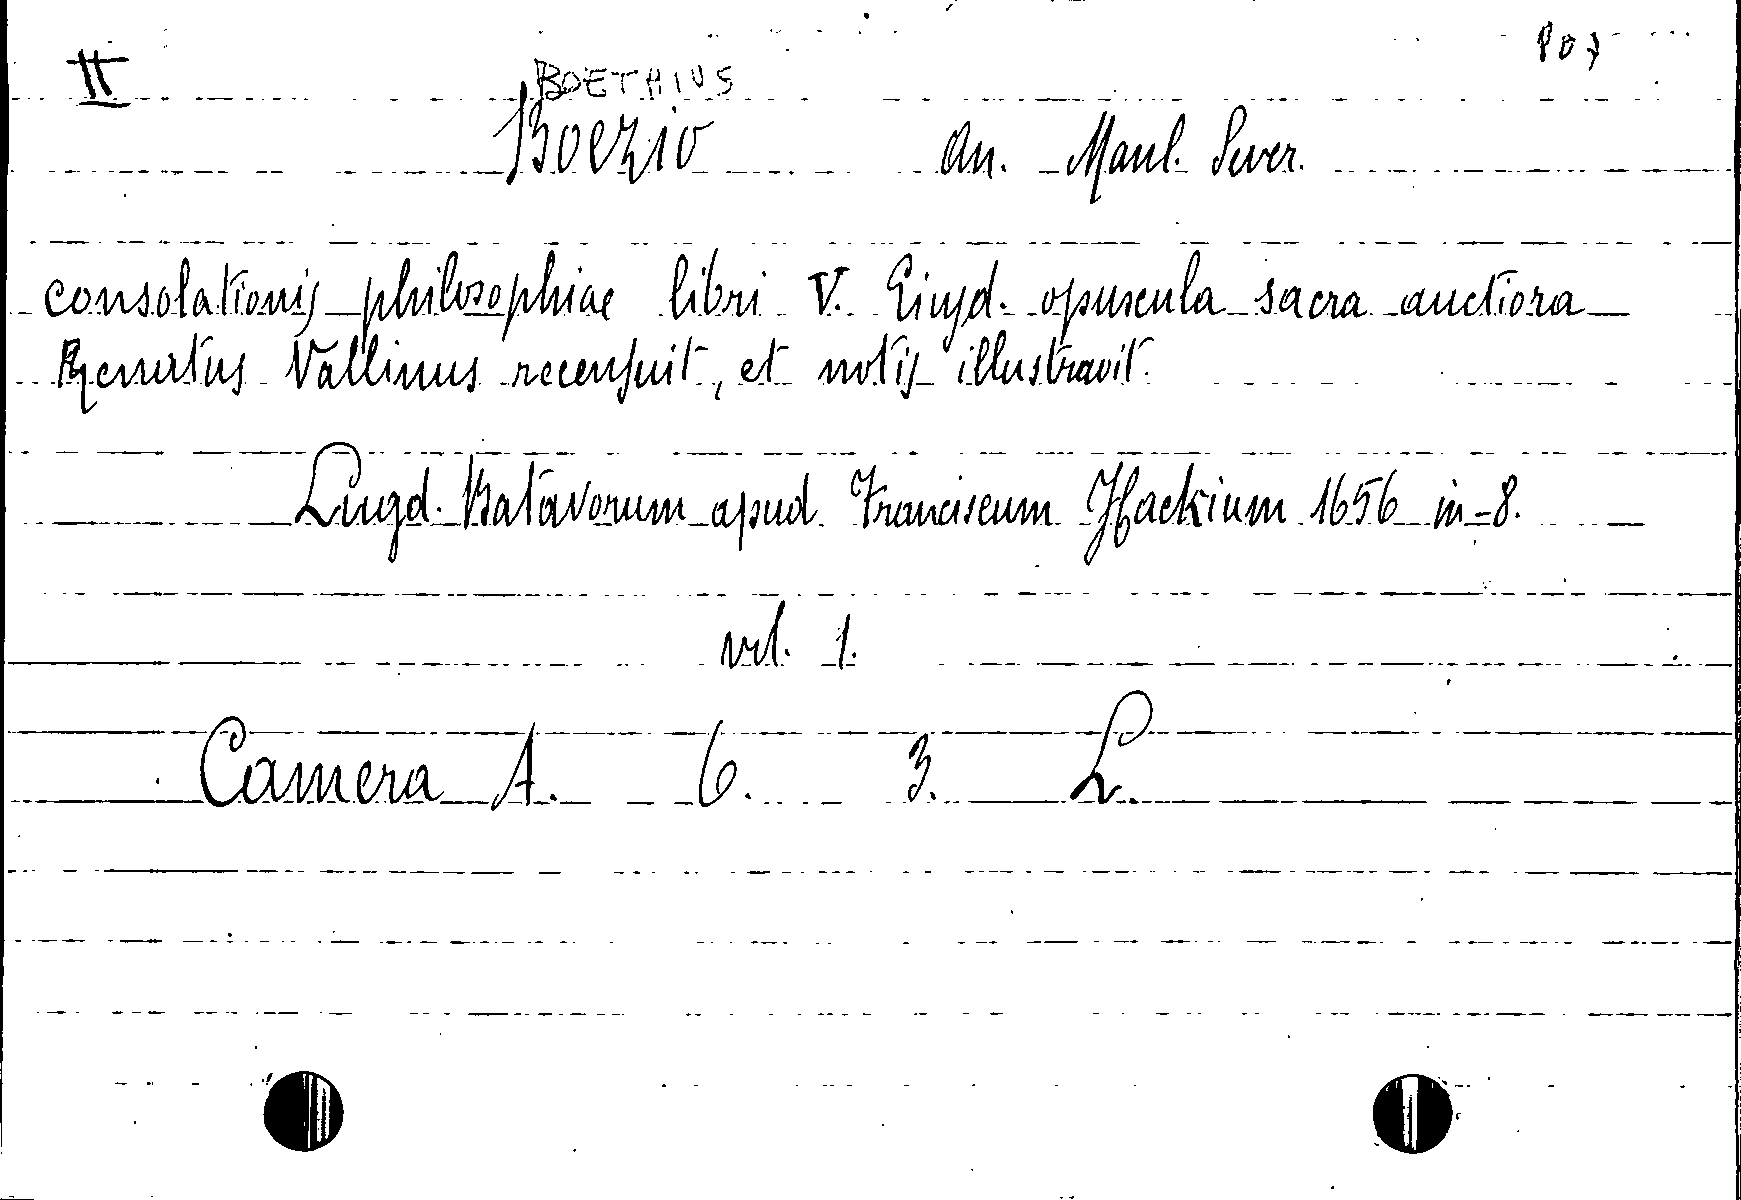 II
807
BOETHIUS
Boezio An. Manl. Sever.
consolationis philosophiae libri V. Eiusd. opuscula sacra auctiora
Renatus Vallinus recensuit, et notis illustravit.
Lugd. Batavorum apud Franciscum Hackium 1656 in-8.
vol. 1.
Camera A. 6. 3. L.